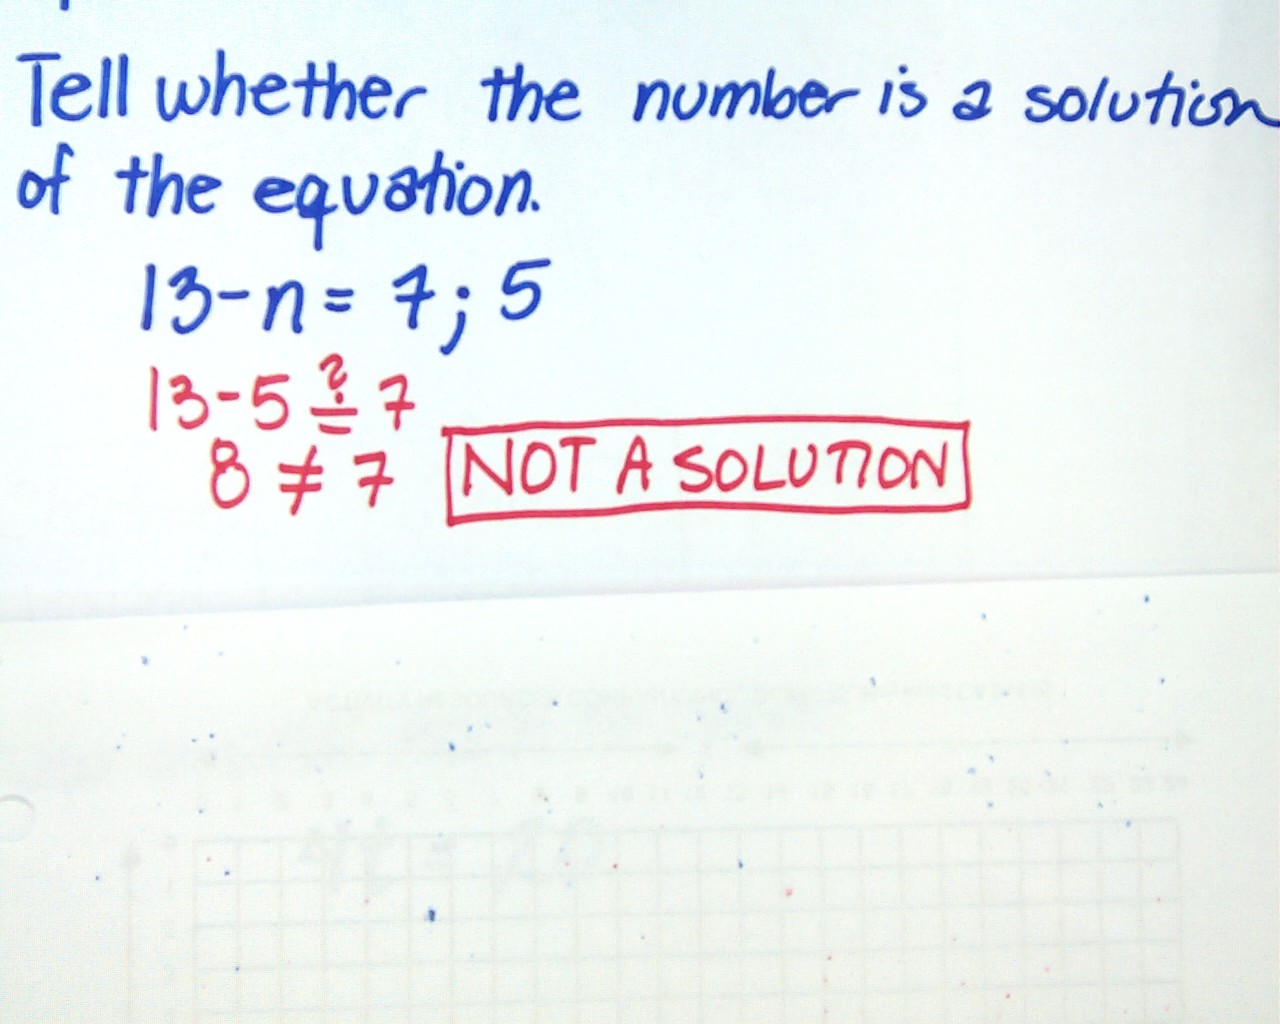 Tell whether the number is a solution
of the equation.
13-n = 7; 5
13-5 ≟ 7
8 ≠ 7 NOT A SOLUTION